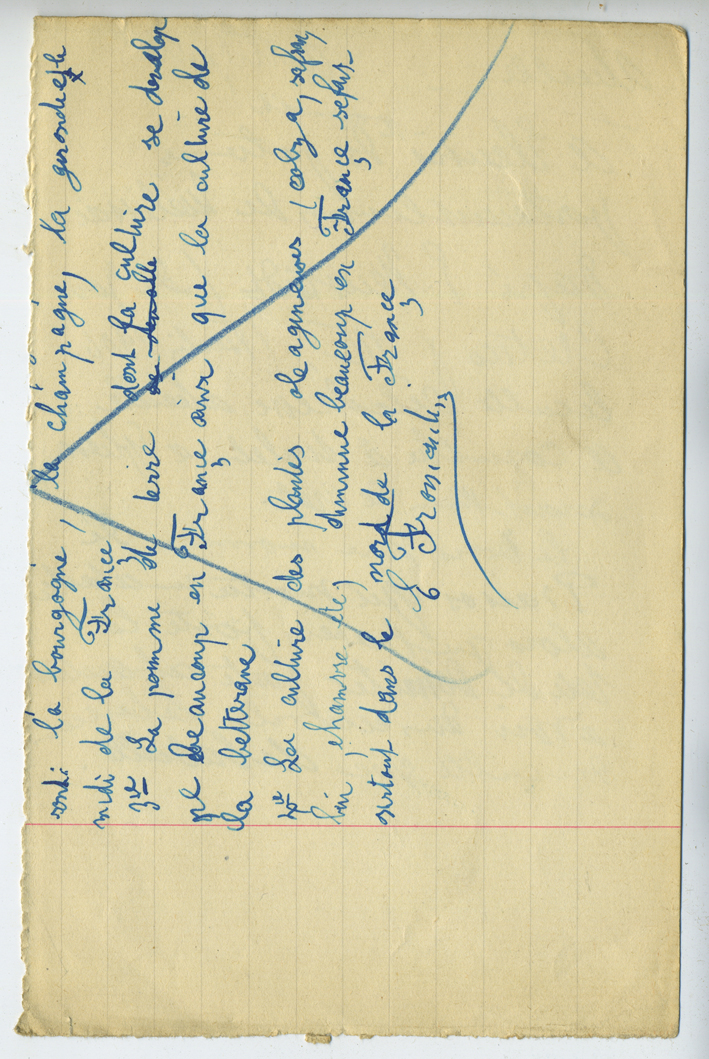 sont: la bourgogne, la champagne, la gironde et le
midi de la France
3ie La pomme de terre dont la culture se develop
pe beaucoup en France ainsi que la culture de
la betterave
4ie La culture des plantes oleagineuses (colza,
lin, chanvre etc) diminue beaucoup en France
surtout dans le nord de la France